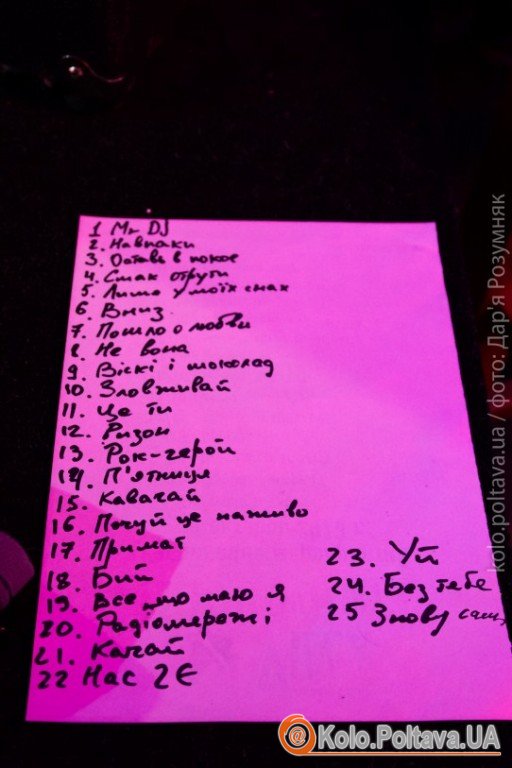 1 Mr DJ
2. Навпаки
3. Оставь в покое
4. Смак отрути
5. Лише у моїх снах
6. Вниз
7. Пошло о любви
8. Не вона
9. Віскі і шоколад
10. Зловживай
11. Це ти
12. Ризон
13. Рок-герой
14. П'ятниця
15. Кавачай
16. Почуй це наживо
17. Примат
18. Бий
19. Все що маю я
20. Радіомережі
21. Качай
22 Нас 2Є
23. Уй
24. Без тебе
25 Знову
kolo.poltava.ua / фото: Дар'я Розумняк
@ Kolo.Poltava.UA